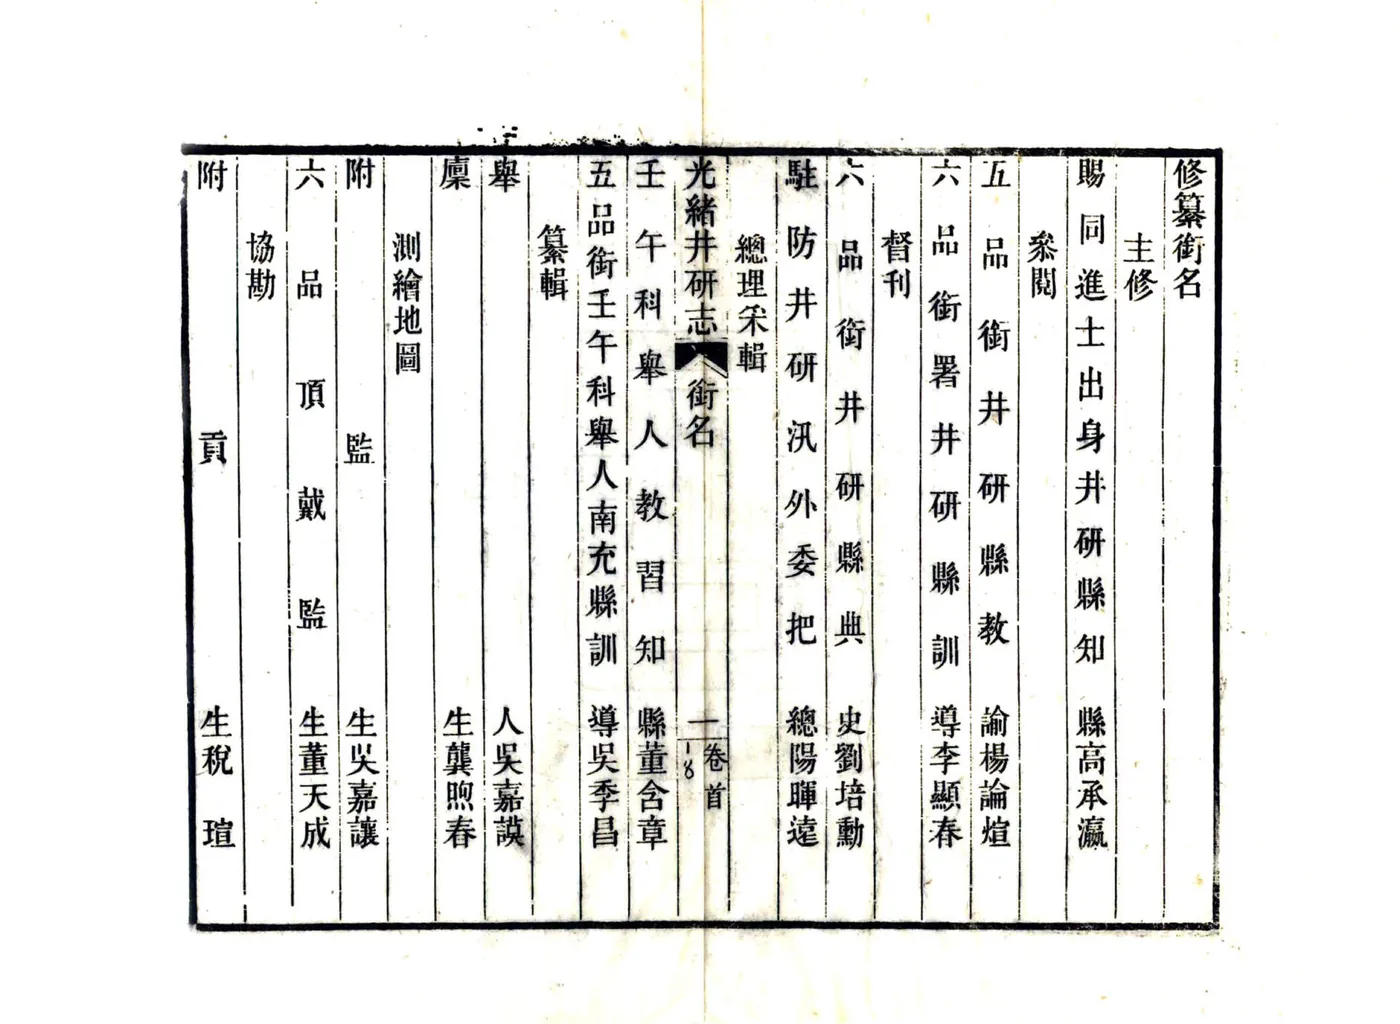 修纂銜名
主修
賜同進士出身井研縣知縣高承瀛
叅閱
五品銜井研縣教諭楊論煊
六品銜署井研縣訓導李顯春
督刊
六品銜井研縣典史劉培勳
駐防井研汛外委把總陽暉遠
總理采輯
光緒井研志 銜名 一 卷首
18
壬午科舉人教習知縣董含章
五品銜壬午科舉人南充縣訓導吳季昌
纂輯
舉人吳嘉謨
廩生龔煦春
測繪地圖
附監生吳嘉讓
六品頂戴監生董天成
協勘
附貢生稅瑄